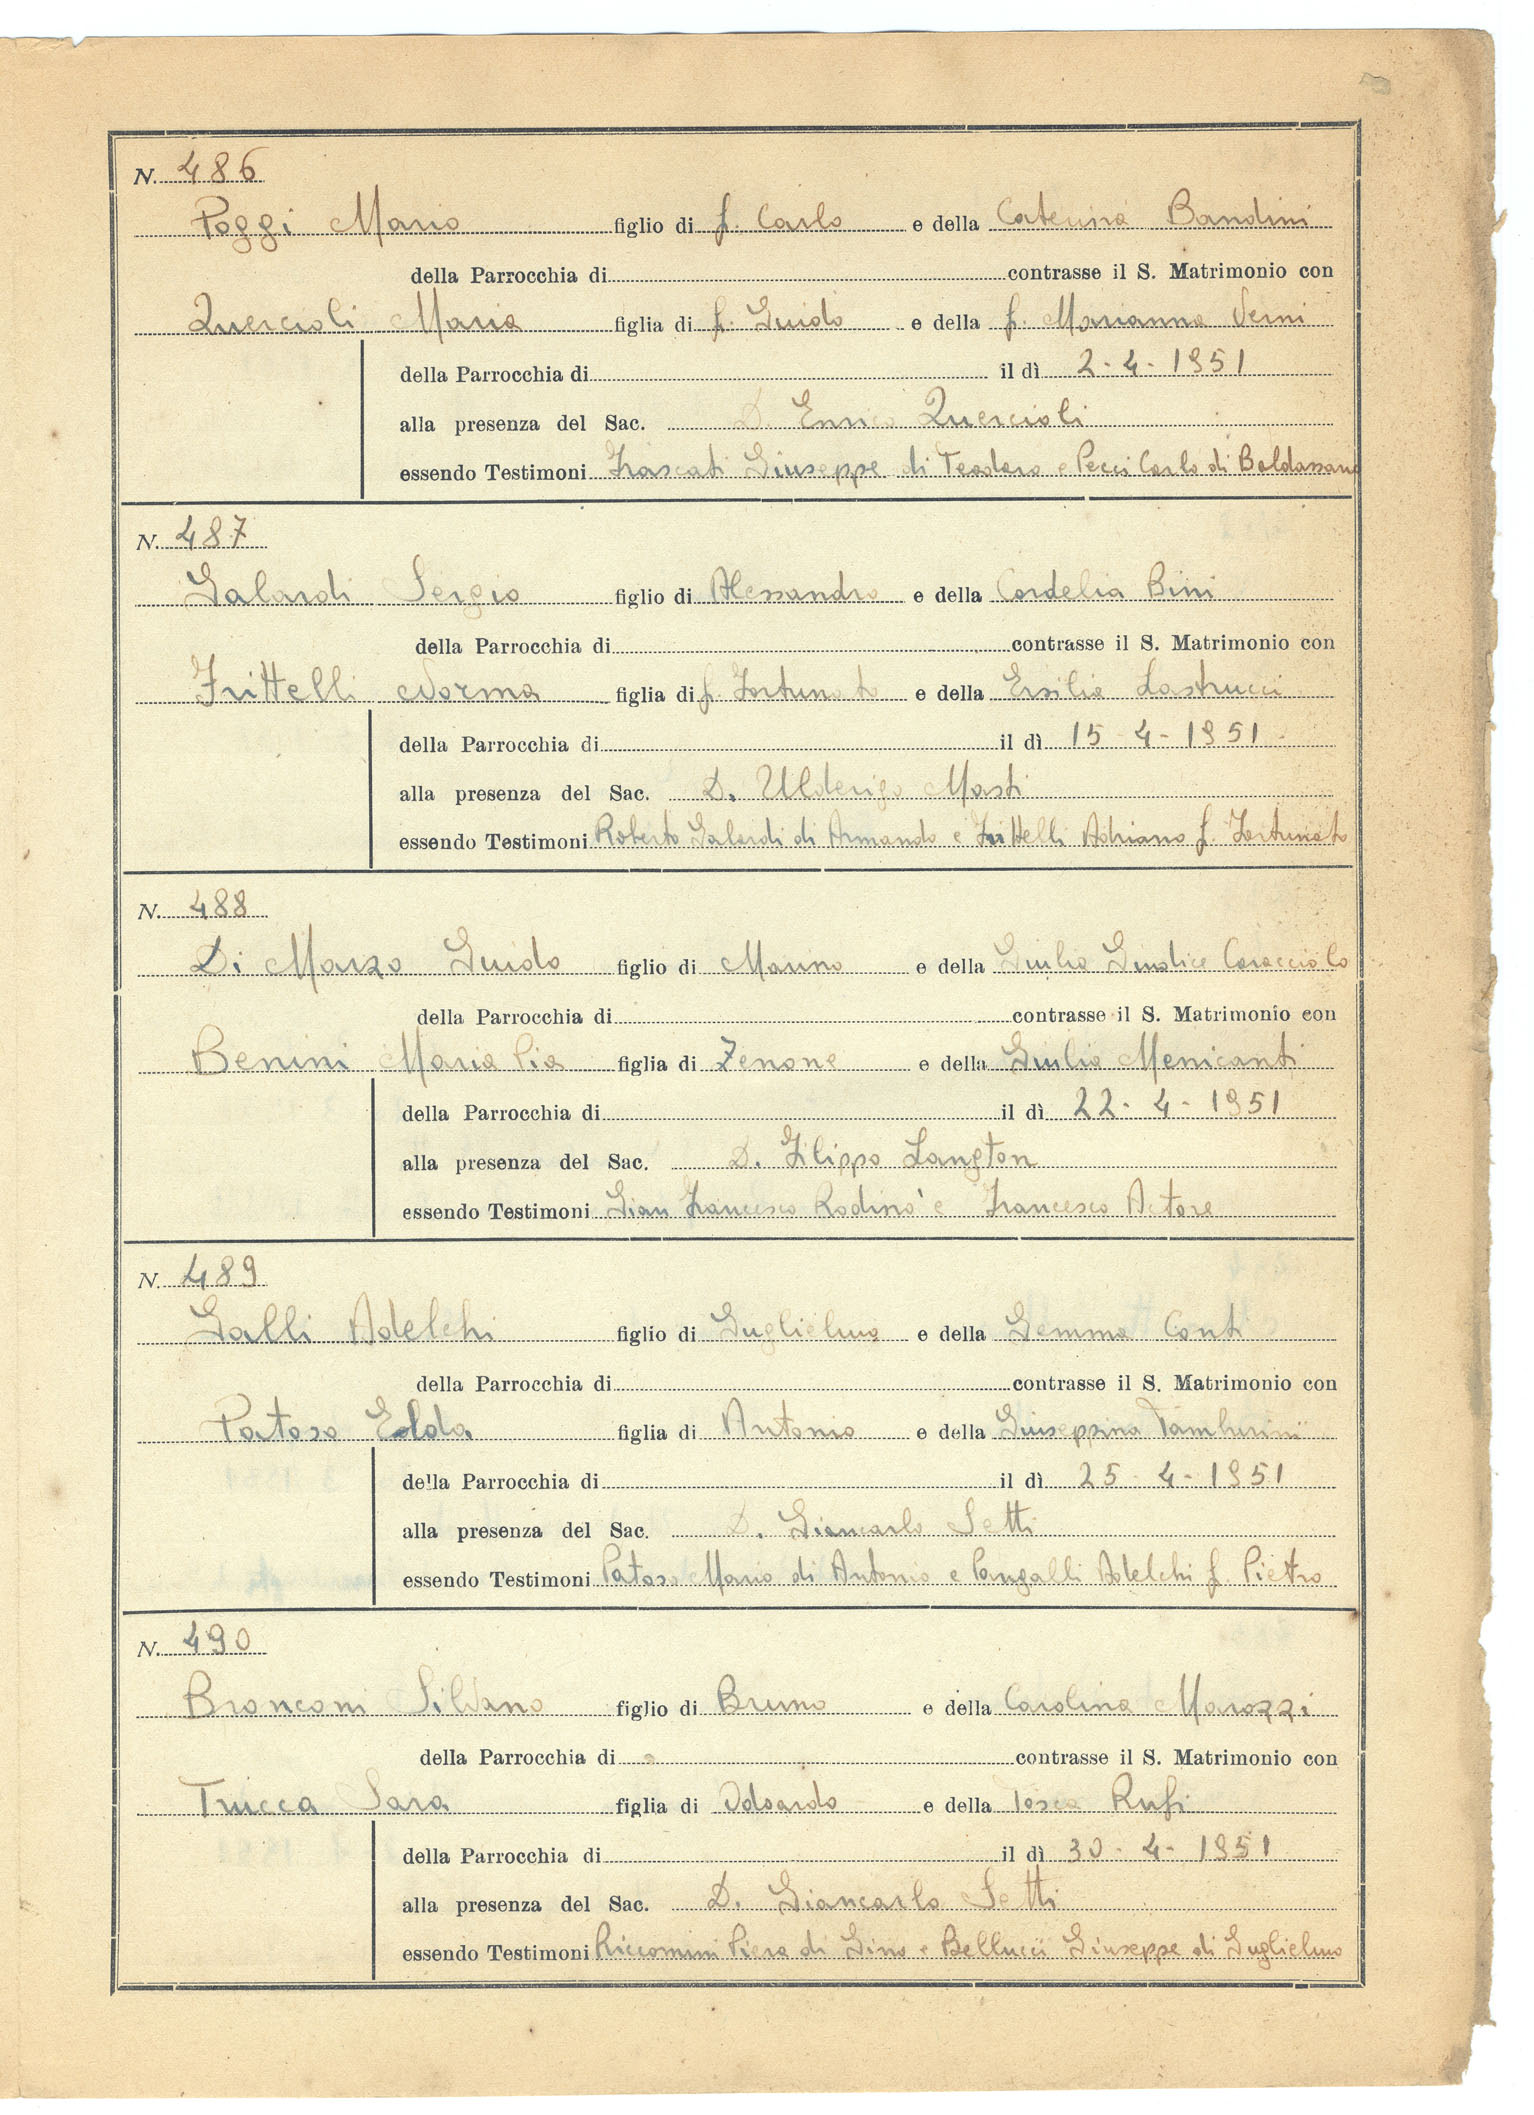 N. 486
Poggi Mario figlio di f. Carlo e della Caterina Bandini
della Parrocchia di contrasse il S. Matrimonio con
Quercioli Maria figlia di f. Guido e della f. Marianna Verni
della Parrocchia di il dì 2-4-1951
alla presenza del Sac. D. Enrico Quercioli
essendo Testimoni Frascati Giuseppe di Teodoro e Pecci Carlo di Baldassarre
N. 487
Galardi Sergio figlio di Alessandro e della Cordelia Bini
della Parrocchia di contrasse il S. Matrimonio con
Frittelli Norma figlia di f. Fortunato e della Ersilia Lastrucci
della Parrocchia di il dì 15-4-1951
alla presenza del Sac. D. Ulderigo Masti
essendo Testimoni Roberto Galardi di Armando e Frittelli Adriano f. Fortunato
N. 488
Di Marzo Guido figlio di Marino e della Giulia Giudice Caracciolo
della Parrocchia di contrasse il S. Matrimonio con
Benini Maria Pia figlia di Zenone e della Giulia Menicanti
della Parrocchia di il dì 22-4-1951
alla presenza del Sac. D. Filippo Langton
essendo Testimoni Gian Francesco Rodinò e Francesco Astore
N. 489
Galli Adelchi figlio di Guglielmo e della Gemma Conti
della Parrocchia di contrasse il S. Matrimonio con
Patoso Elda figlia di Antonio e della Giuseppina Tamburini
della Parrocchia di il dì 25-4-1951
alla presenza del Sac. D. Giancarlo Setti
essendo Testimoni Patoso Mario di Antonio e Pangalli Adelchi f. Pietro
N. 490
Bronconi Silvano figlio di Bruno e della Carolina Marozzi
della Parrocchia di contrasse il S. Matrimonio con
Trucca Sara figlia di Odoardo e della Tosca Rufi
della Parrocchia di il dì 30-4-1951
alla presenza del Sac. D. Giancarlo Setti
essendo Testimoni Riccomini Piera di Gino e Bellucci Giuseppe di Guglielmo